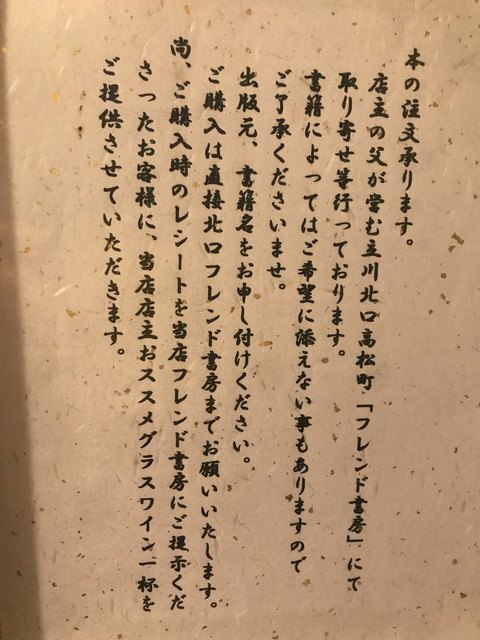 本の注文承ります。
店主の父が営む立川北口高松町「フレンド書房」にて
取り寄せ等行っております。
書籍によってはご希望に添えない事もありますので
ご了承くださいませ。
出版元、書籍名をお申し付けください。
ご購入は直接北口フレンド書房までお願いいたします。
尚、ご購入時のレシートを当店フレンド書房にご提示くだ
さったお客様に、当店店主おススメグラスワイン一杯を
ご提供させていただきます。